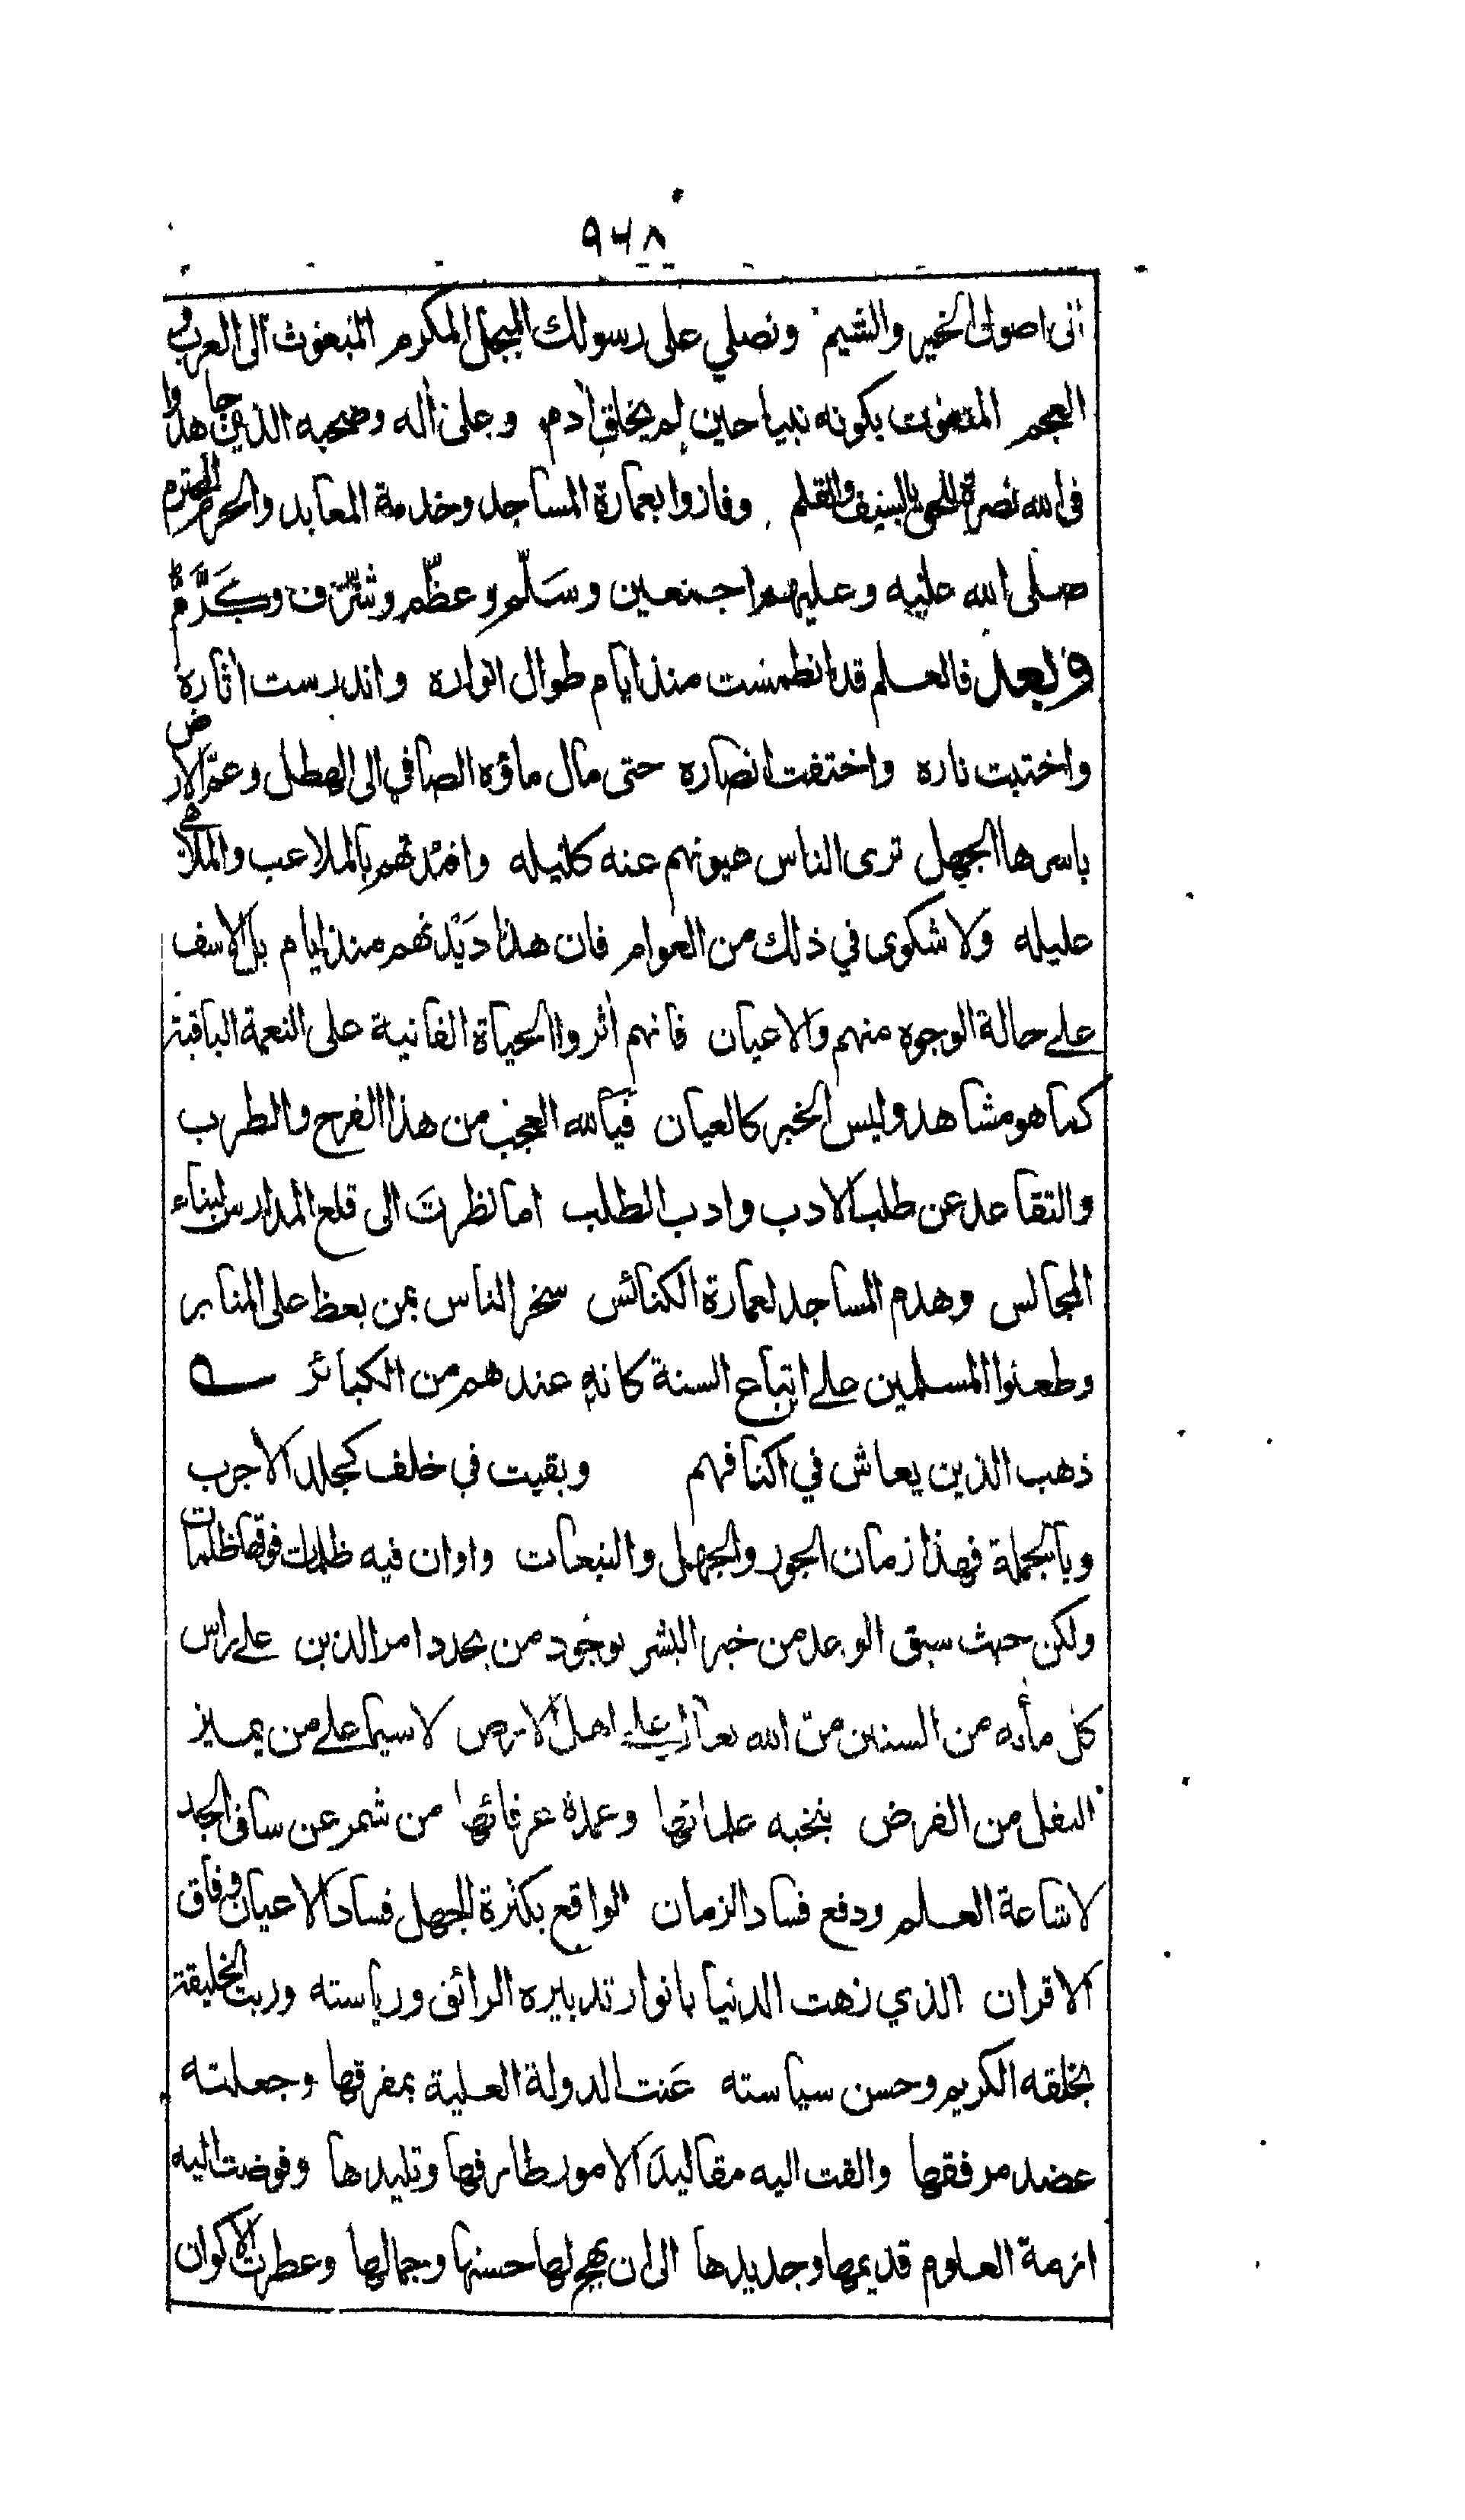 ٩٤٨
الى اصول الخير والشيم ونصلي على رسولك المبجل المكرم المبعوث الى العرب و
العجم المنعوت بكونه نبيا حين لم يخلق ادم وعلى اله وصحبه الذين جاهدوا
فى الله نصرة للحق بالسيف والقلم وفازوا بعمارة المساجد وخدمة المعابد والحرم المحترم
صلى الله عليه وعليهم اجمعين وسَلّم وعظّم وشرّف وكَرَّمَ
وبعد فالعلم قد انطمست منذ ايام طوال انواره واندرست اثاره
واختبت ناره واختفت انصاره حتى مال ماؤه الصافي الى الهطل وعمّ الارض
باسرها الجهل ترى الناس عيونهم عنه كليله وافئدتهم بالملاعب والملاهي
عليله ولا شكوى في ذلك من العوام فان هذا دَيْدنهم منذ ايام بل الاسف
على حالة الوجوه منهم والاعيان فانهم اثروا الحياة الفانية على النعمة الباقية
كما هو مشاهد وليس الخبر كالعيان فيالله العجب من هذا الفرح والطرب
والتقاعد عن طلب الادب وادب الطلب اما نظرتَ الى قلع المدارس لبناء
المجالس وهدم المساجد لعمارة الكنائس سخر الناس بمن يعظ على المنابر
وطعنوا المسلمين على اتباع السنة كانه عندهم من الكبائر
ذهب الذين يعاش في اكنافهم وبقيت في خلف كجلد الاجرب
وبالجملة فهذا زمان الجور والجهل والتبعات واوان فيه ظلمات فوقها ظلمات
ولكن حيث سبق الوعد من خير البشر بوجود من يجدد امر الدين على راس
كل مأه من السنين من الله تعالى على اهل الارض لا سيما على من يميز
النفل من الفرض بنخبه علمائها وعمدة عرفائها من شمر عن ساق الجد
لاشاعة العلم ودفع فساد الزمان الواقع بكثرة الجهل فساد الاعيان وفاق
الاقران الذي زهت الدنيا بانوار تدبيره الرائق ورياسته وربت الخليقة
بخلقه الكريم وحسن سياسته عَنت الدولة العلية بمفرقها وجعلته
عضد مرفقها والقت اليه مقاليد الامور طارفها وتليدها وفوضت اليه
ازمة العلوم قديمها وجديدها الى ان بهج لها حسنها وجمالها وعطرت الاكوان